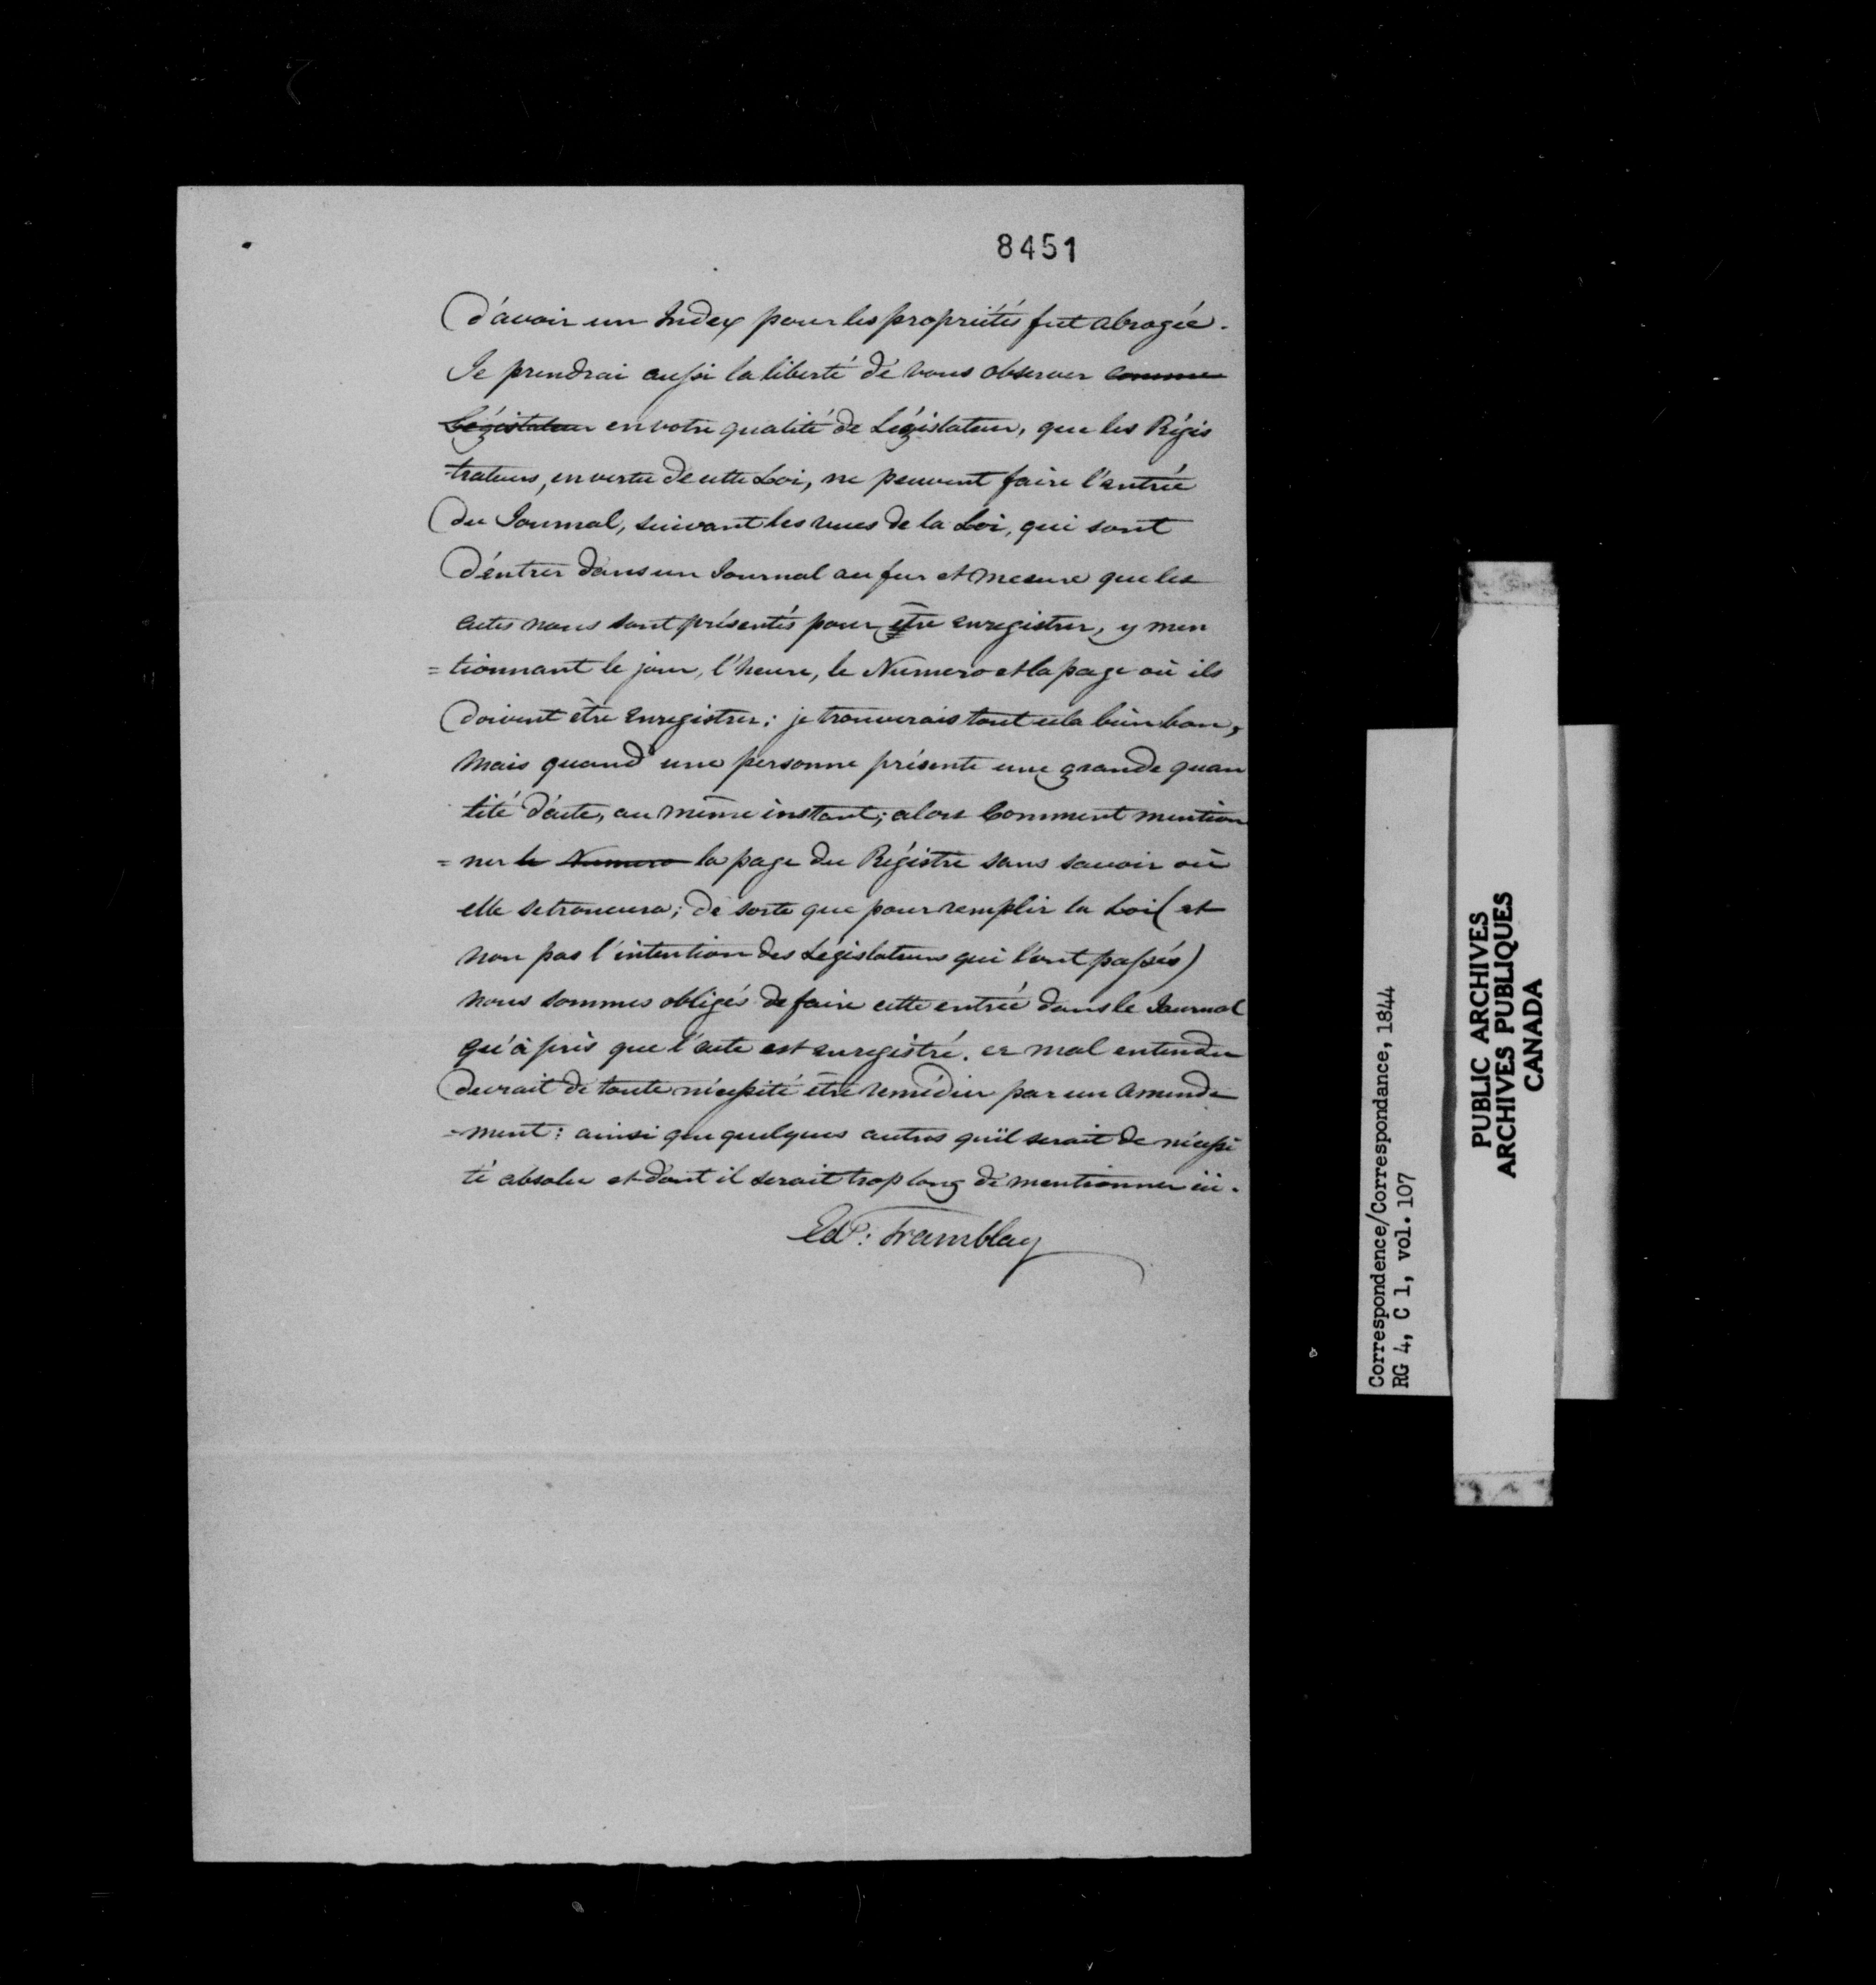 8451
d'avoir un Index pour les propriétés fut abrogée.
Je prendrai aussi la liberté de vous observer comme
Législateur en votre qualité de Législateur, que les Régis
trateurs, en vertu de cette Loi, ne peuvent faire l'entrée
du Journal, suivant les vues de la Loi, qui sont
d'entrer dans un Journal au fur et mesure que les
actes nous sont présentés pour être enregistrer, y men
=tionnant le jour, l'heure, le Numero et la page où ils
doivent être enregistrer; je trouverais tout cela bien bon,
mais quand une personne présente une grande quan
tité d'acte, au même instant; alors Comment mention
=ner le Numero la page du Régistre sans savoir où
elle se trouvera; de sorte que pour remplir la Loi (et
non pas l'intention des Législateurs qui l'ont passés)
nous sommes obligés de faire cette entrée dans le Journal
qu'à près que l'acte est enregistré. ce mal entendu
devrait de toute nécessité être remédier par un amende
=ment: ainsi que quelques autres qu'il serait de nécessi
té absolu et dont il serait trop long de mentionner ici.
Ed.: Tramblay
Correspondence/Correspondance, 1844
RG 4, C 1, vol. 107
PUBLIC ARCHIVES
ARCHIVES PUBLIQUES
CANADA